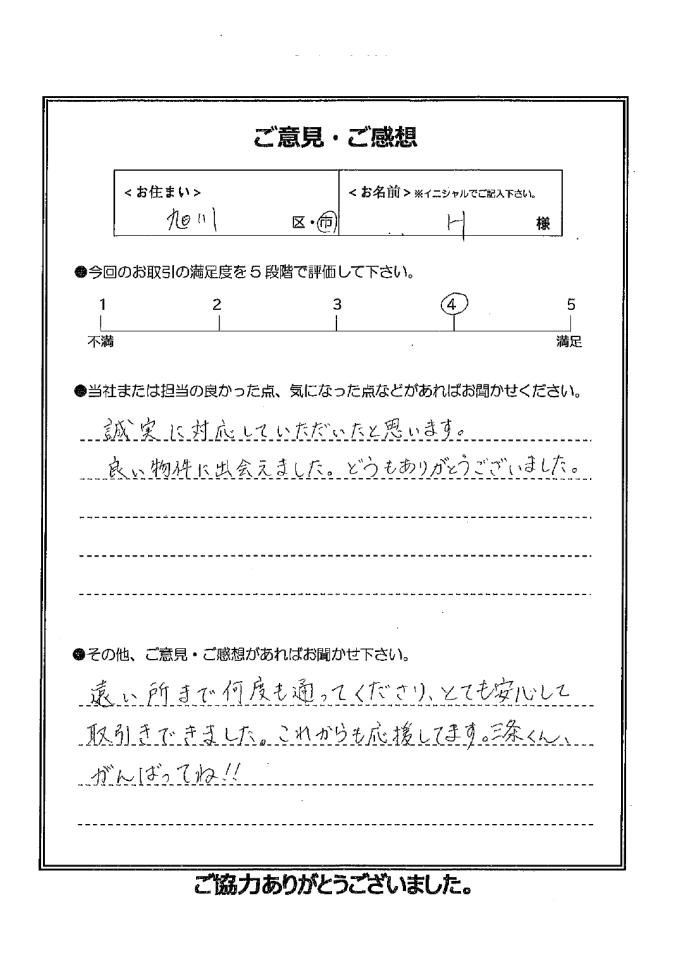 ご意見・ご感想
<お住まい>
旭川 区・市
<お名前>※イニシャルでご記入下さい。
H 様
●今回のお取引の満足度を5段階で評価して下さい。
1 2 3 4 5
不満 満足
●当社または担当の良かった点、気になった点などがあればお聞かせください。
誠実に対応していただいたと思います。
良い物件に出会えました。どうもありがとうございました。
●その他、ご意見・ご感想があればお聞かせ下さい。
遠い所まで何度も通ってくださり、とても安心して
取引きできました。これからも応援してます。三条くん、
がんばってね!!
ご協力ありがとうございました。